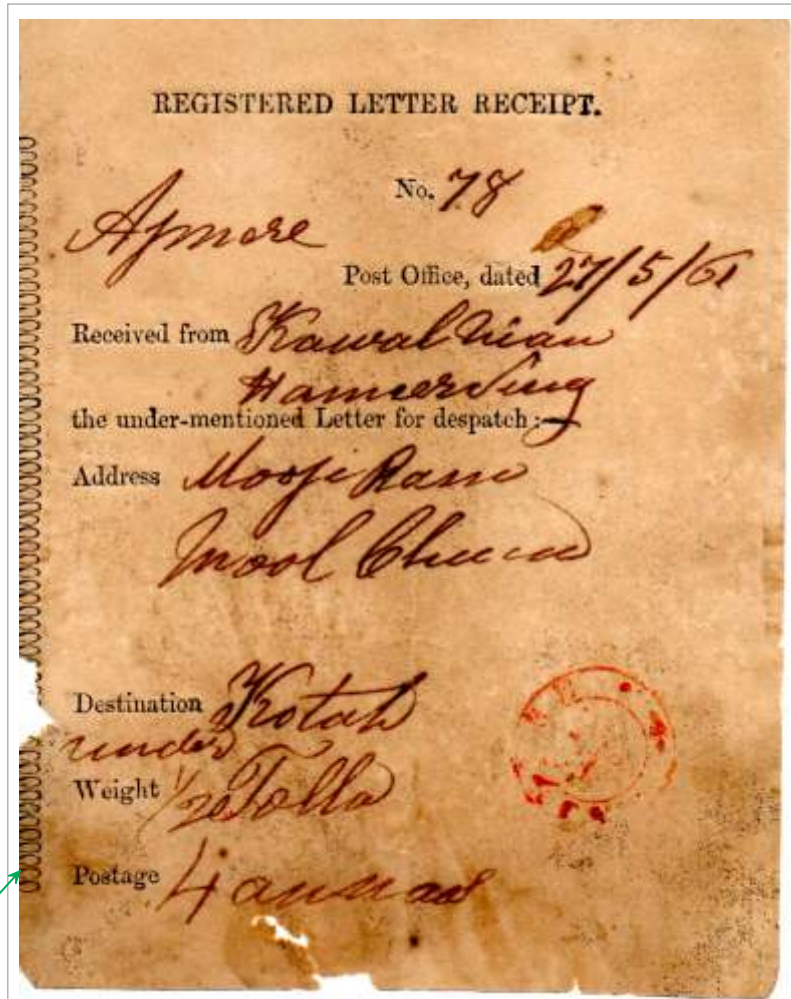 REGISTERED LETTER RECEIPT.
No. 78
Ajmere
Post Office, dated 27/5/61
Received from Kawal Nian
Hameer Sing
the under-mentioned Letter for despatch :—
Address Mooji Ram
Mool Chund
Destination Kotah
under
Weight 1/2 Tolla
Postage 4 annas